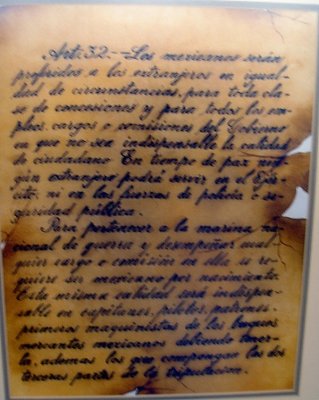 Art. 32.--Los mexicanos serán
preferidos a los extranjeros en igual-
dad de circunstancias, para toda cla-
se de concesiones y para todos los em-
pleos, cargos o comisiones del Gobierno
en que no sea indispensable la calidad
de ciudadano. En tiempo de paz, nin-
gún extranjero podrá servir en el Ejér-
cito, ni en las fuerzas de policía o se-
guridad pública.
Para pertenecer a la marina na-
cional de guerra y desempeñar cual-
quier cargo o comisión en ella, se re-
quiere ser mexicano por nacimiento.
Esta misma calidad será indispen-
sable en capitanes, pilotos, patrones,
primeros maquinistas de los buques
mercantes mexicanos debiendo tener-
la, además los que compongan las dos
terceras partes de la tripulación.